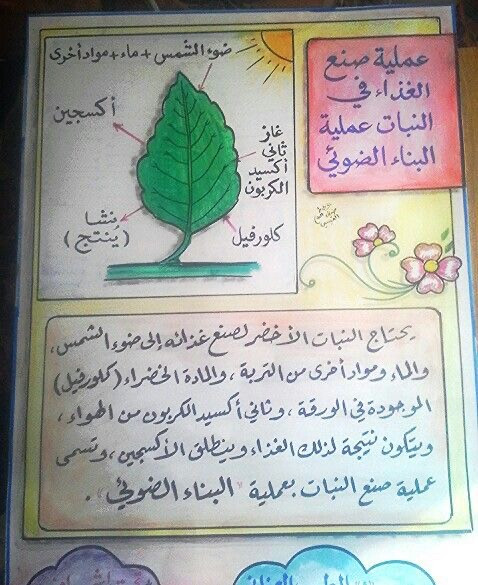 عملية صنع
الغذاء في
النبات عملية
البناء الضوئي
ضوء الشمس + ماء + مواد أخرى
أكسجين
غاز
ثاني
أكسيد
الكربون
نشا
(يُنتج)
كلورفيل
يحتاج النبات الأخضر لصنع غذائه إلى ضوء الشمس،
والماء ومواد أخرى من التربة، والمادة الخضراء (كلورفيل)
الموجودة في الورقة، وثاني أكسيد الكربون من الهواء،
ويتكون نتيجة لذلك الغذاء وينطلق الأكسجين، وتسمى
عملية صنع النبات بعملية "البناء الضوئي".